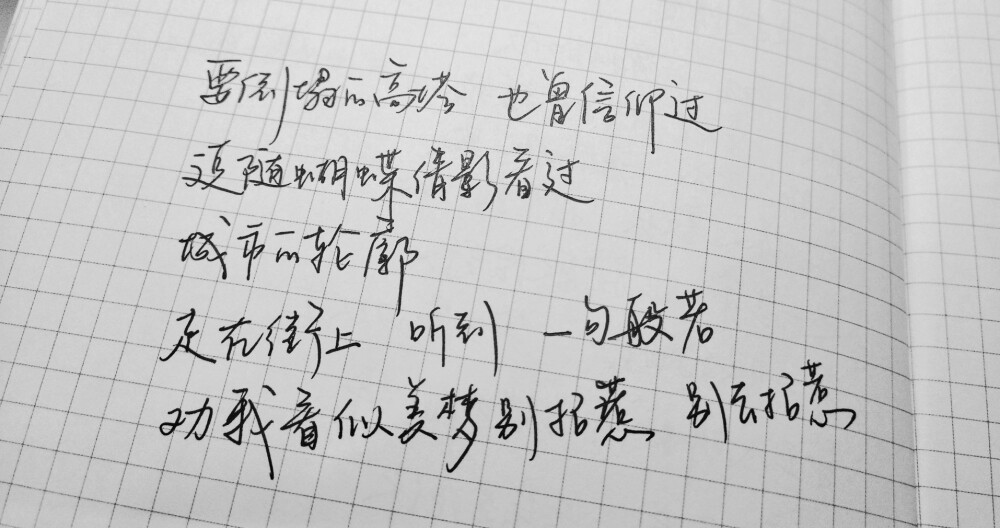 要倒塌的高塔 也曾信仰过
这随蝴蝶倩影看过
城市的轮廓
走在街上 听到 一句般若
劝我看似美梦别招惹 别去招惹